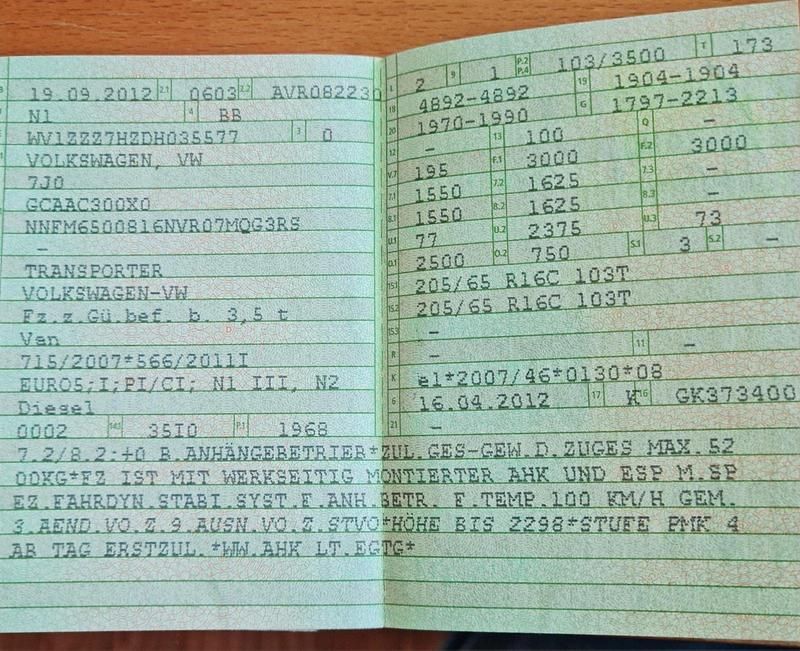 19.09.2012 2.1 0603 2.2 AVR082230
N1 4 BB
WV1ZZZ7HZDH035577 3 0
VOLKSWAGEN, VW
7J0
GCAAC300X0
NNFM6500816NVR07MQG3RS
–
TRANSPORTER
VOLKSWAGEN-VW
Fz.z.Gü.bef. b. 3,5 t
Van
715/2007*566/2011I
EURO5;I;PI/CI; N1 III, N2
Diesel
0002 14.1 35I0 P.1 1968
L 2 9 1 P.2 P.4 103/3500 T 173
18 4892-4892 19 1904-1904
20 1970-1990 G 1797-2213
12 – 13 100 Q –
V.7 195 F.1 3000 F.2 3000
7.1 1550 7.2 1625 7.3 –
8.1 1550 8.2 1625 8.3 –
U.1 77 U.2 2375 U.3 73
O.1 2500 O.2 750 S.1 3 S.2 –
15.1 205/65 R16C 103T
15.2 205/65 R16C 103T
15.3 –
R – 11 –
K e1*2007/46*0130*08
6 16.04.2012 17 K 16 GK373400
21 –
7.2/8.2:+0 B.ANHÄNGEBETRIEB*ZUL.GES-GEW.D.ZUGES MAX.52
00KG*FZ IST MIT WERKSEITIG MONTIERTER AHK UND ESP M.SP
EZ.FAHRDYN.STABI.SYST.F.ANH.BETR. F.TEMP.100 KM/H GEM.
3.AEND.VO.Z.9.AUSN.VO.Z.STVO*HÖHE BIS 2298*STUFE PMK 4
AB TAG ERSTZUL.*WW.AHK LT.EGTG*